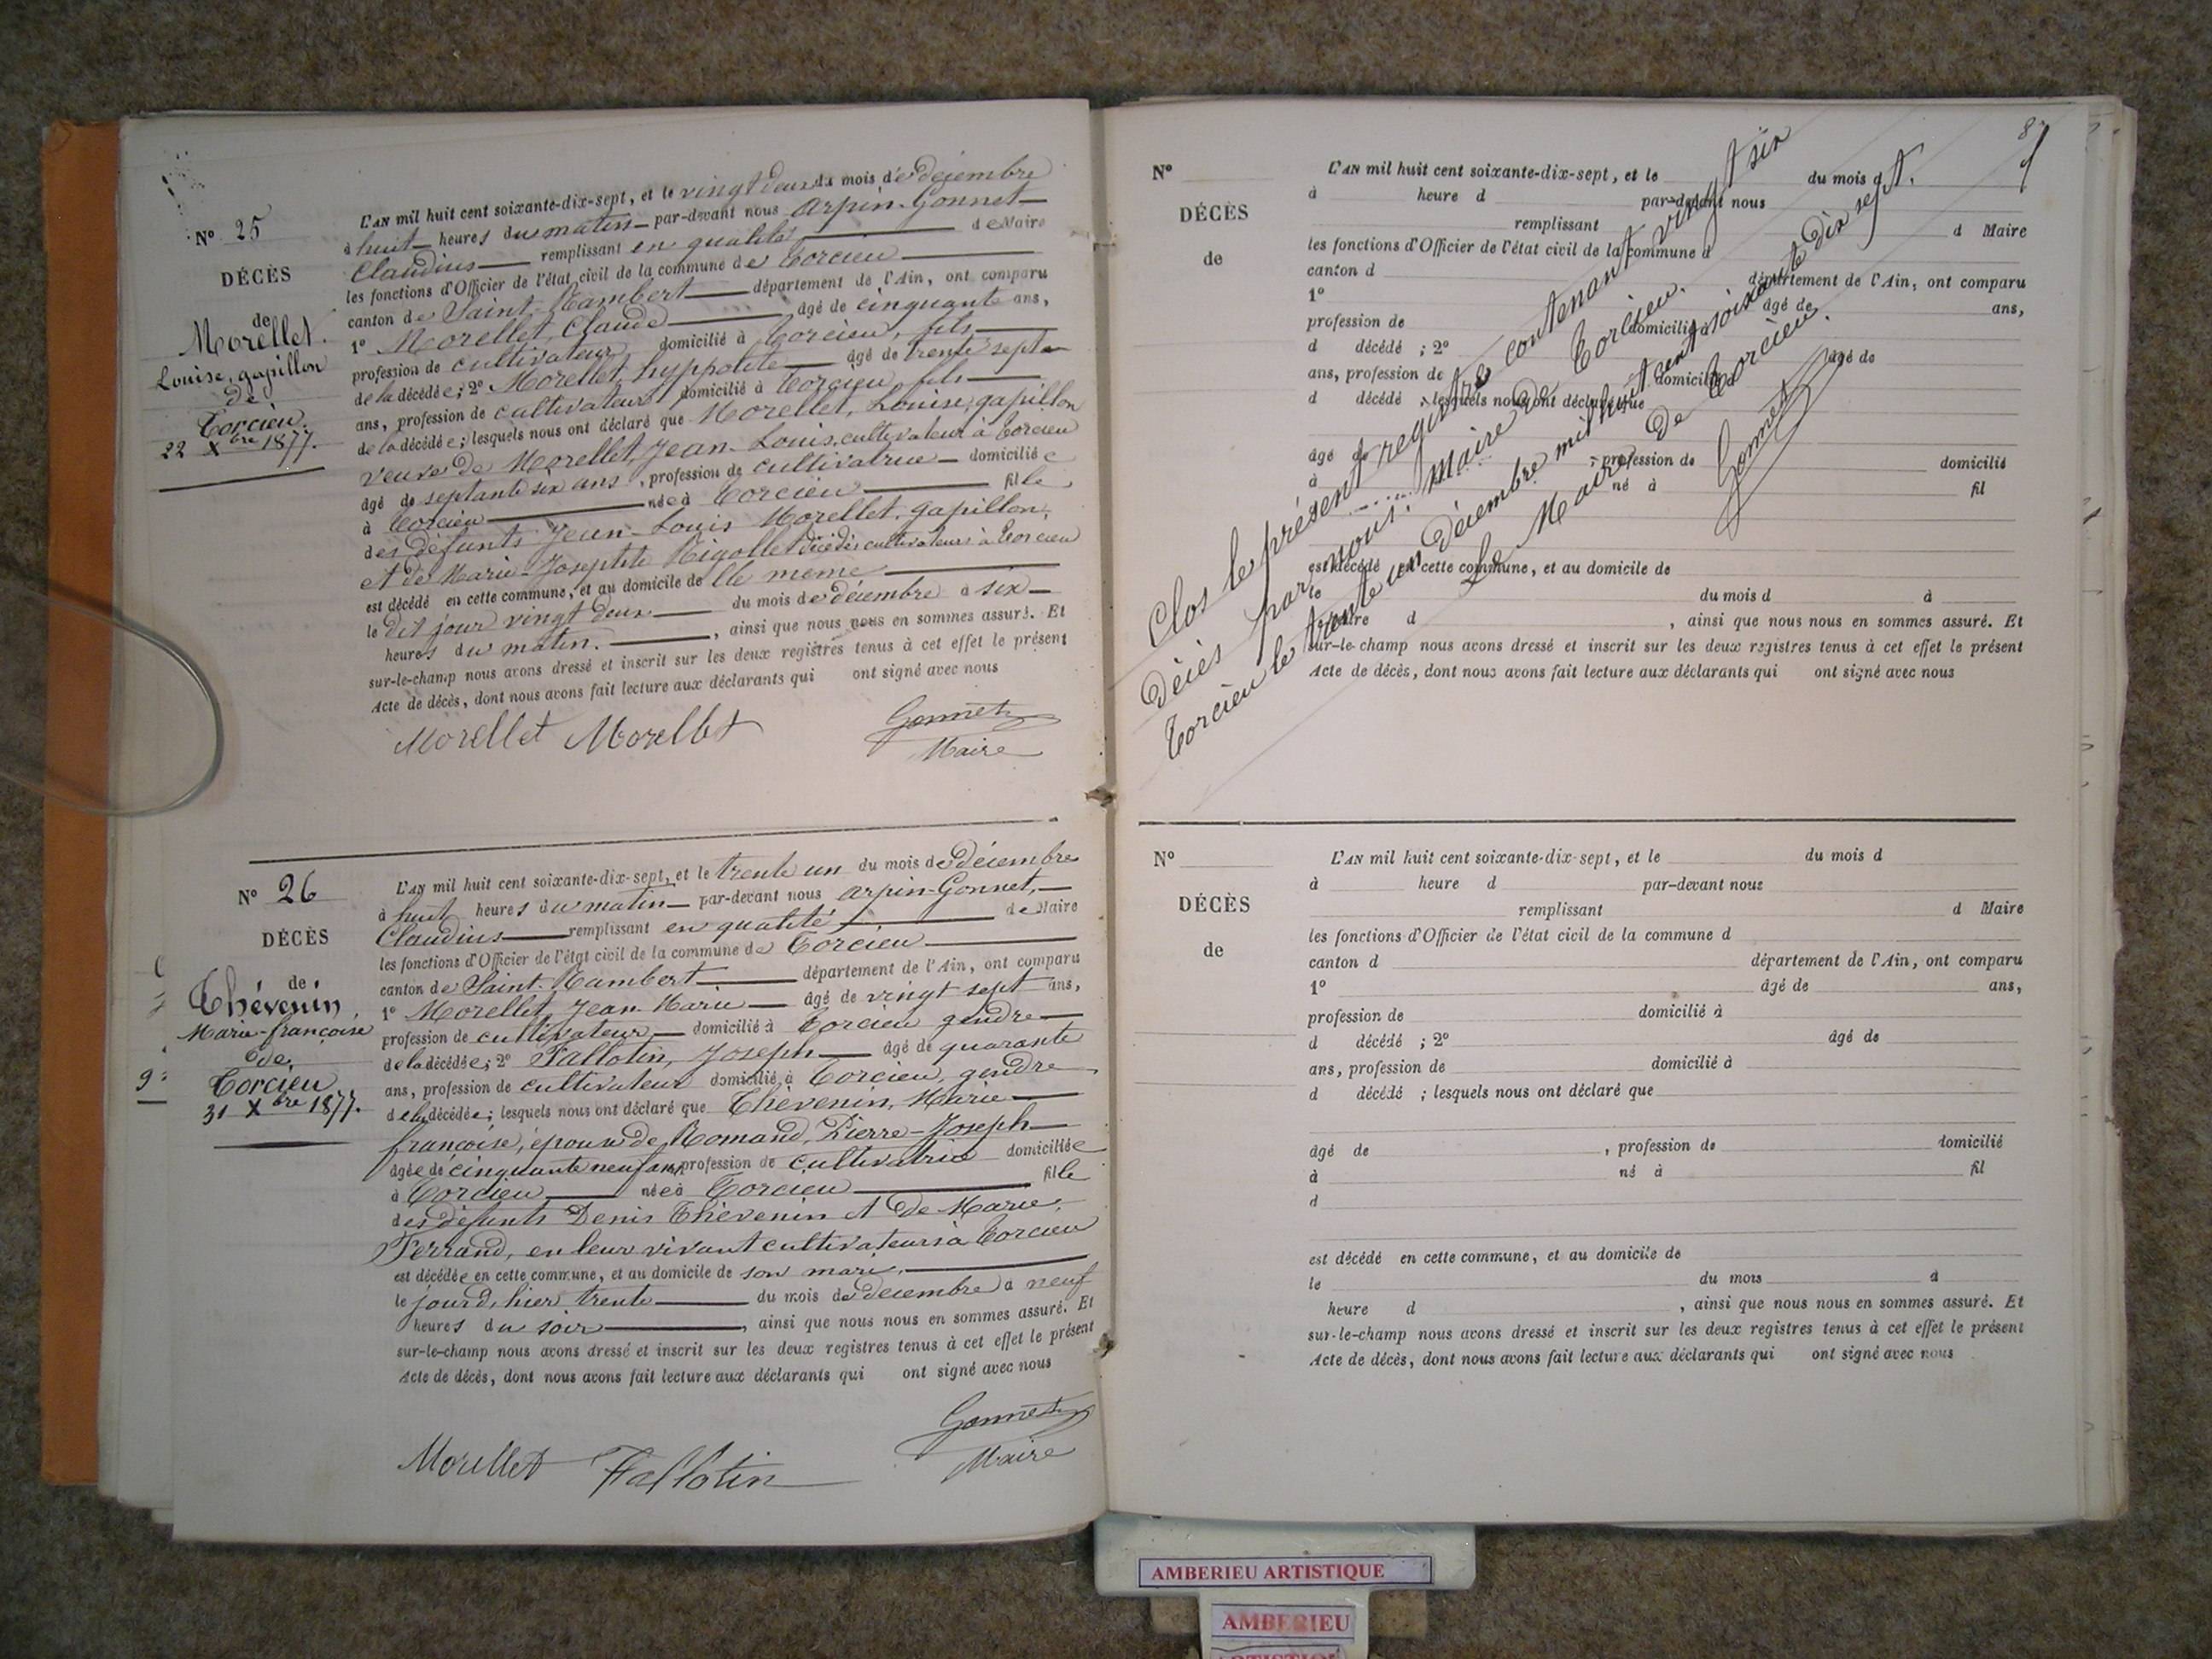 N° 25
DÉCÈS
de
Morellet.
Louise, gapillon
de
Torcieu.
22 Xbre 1877.
L'AN mil huit cent soixante-dix-sept, et le vingt deux du mois de décembre
à huit heures du matin par-devant nous Arpin-Gonnet
Claudius remplissant en qualité de Maire
les fonctions d'Officier de l'état civil de la commune de Torcieu
canton de Saint-Rambert département de l'Ain, ont comparu
1° Morellet, Claude âgé de cinquante ans,
profession de cultivateur domicilié à Torcieu, fils
de la décédée ; 2° Morellet hyppolite âgé de trente sept
ans, profession de cultivateur domicilié à Torcieu fils
de la décédée ; lesquels nous ont déclaré que Morellet, Louise, gapillon
veuve de Morellet, Jean-Louis, cultivateur à Torcieu
âgé de septante six ans, profession de cultivatrice domiciliée
à Torcieu née à Torcieu fille
des défunts Jean-Louis Morellet, gapillon,
et de Marie-Josephte Rigollet décédés cultivateurs à Torcieu
est décédé en cette commune, et au domicile de lle meme
le dit jour vingt deux du mois de décembre à six
heures du matin. , ainsi que nous nous en sommes assuré. Et
sur-le-champ nous avons dressé et inscrit sur les deux registres tenus à cet effet le présent
Acte de décès, dont nous avons fait lecture aux déclarants qui ont signé avec nous
Morellet Morellet Gonnet
Maire
N° 26
DÉCÈS
de
Thévenin,
Marie-françoise
de
Torcieu
31 Xbre 1877.
L'AN mil huit cent soixante-dix-sept, et le trente un du mois de décembre
à huit heures du matin par-devant nous Arpin-Gonnet,
Claudius remplissant en qualité de Maire
les fonctions d'Officier de l'état civil de la commune de Torcieu
canton de Saint-Rambert département de l'Ain, ont comparu
1° Morellet, Jean-Marie âgé de vingt sept ans,
profession de cultivateur domicilié à Torcieu gendre
de la décédée ; 2° Fallotin, Joseph âgé de quarante
ans, profession de cultivateur domicilié à Torcieu, gendre
de la décédée ; lesquels nous ont déclaré que Thévenin, Marie
françoise, épouse de Romand, Pierre-Joseph
âgée de cinquante neuf ans, profession de cultivatrice domiciliée
à Torcieu née à Torcieu fille
des défunts Denis Thévenin et de Marie
Ferrand, en leur vivant cultivateurs à Torcieu
est décédée en cette commune, et au domicile de son mari,
le jourd, hier trente du mois de décembre à neuf
heures du soir , ainsi que nous nous en sommes assuré. Et
sur-le-champ nous avons dressé et inscrit sur les deux registres tenus à cet effet le présent
Acte de décès, dont nous avons fait lecture aux déclarants qui ont signé avec nous
Gonnet
Morellet Fallotin Maire
87
N°
DÉCÈS
de
L'AN mil huit cent soixante-dix-sept, et le du mois d
à heure d par-devant nous
remplissant d Maire
les fonctions d'Officier de l'état civil de la commune d
canton d département de l'Ain, ont comparu
1° âgé de ans,
profession de domicilié à
d décédé ; 2° âgé de
ans, profession de domicilié à
d décédé ; lesquels nous ont déclaré que
âgé de , profession de domicilié
à né à fil
est décédé en cette commune, et au domicile de
le du mois d à
heure d , ainsi que nous nous en sommes assuré. Et
sur-le-champ nous avons dressé et inscrit sur les deux registres tenus à cet effet le présent
Acte de décès, dont nous avons fait lecture aux déclarants qui ont signé avec nous
Clos le présent registre contenant vingt six
Décès par nous. Maire de Torcieu.
Torcieu le trente un Décembre mil huit cent soixante dix sept.
Le Maire de Torcieu.
Gonnet
N°
DÉCÈS
de
L'AN mil huit cent soixante-dix-sept, et le du mois d
à heure d par-devant nous
remplissant d Maire
les fonctions d'Officier de l'état civil de la commune d
canton d département de l'Ain, ont comparu
1° âgé de ans,
profession de domicilié à
d décédé ; 2° âgé de
ans, profession de domicilié à
d décédé ; lesquels nous ont déclaré que
âgé de , profession de domicilié
à né à fil
d
est décédé en cette commune, et au domicile de
le du mois d
heure d , ainsi que nous nous en sommes assuré. Et
sur-le-champ nous avons dressé et inscrit sur les deux registres tenus à cet effet le présent
Acte de décès, dont nous avons fait lecture aux déclarants qui ont signé avec nous
AMBERIEU ARTISTIQUE
AMBERIEU
ARTISTIQUE